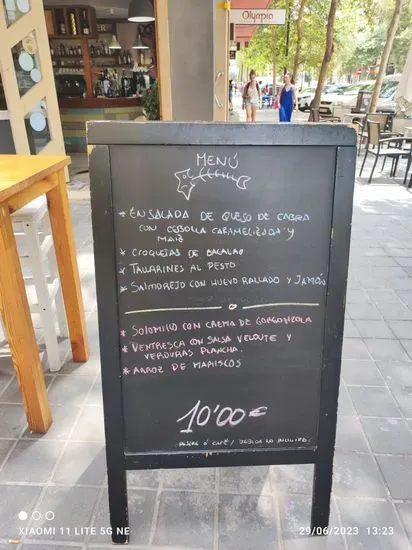 Olympia
MENÚ
* ENSALADA DE QUESO DE CABRA
CON CEBOLLA CARAMELIZADA Y
MAIZ
* CROQUETAS DE BACALAO
* TALLARINES AL PESTO
* SALMOREJO CON HUEVO RALLADO Y JAMÓN
* SOLOMILLO CON CREMA DE GORGONZOLA
* VENTRESCA CON SALSA VELOUTE Y
VERDURAS PLANCHA.
* ARROZ DE MARISCOS
10'00€
POSTRE O CAFÉ / BEBIDA NO INCLUIDA
XIAOMI 11 LITE 5G NE
29/06/2023 13:23